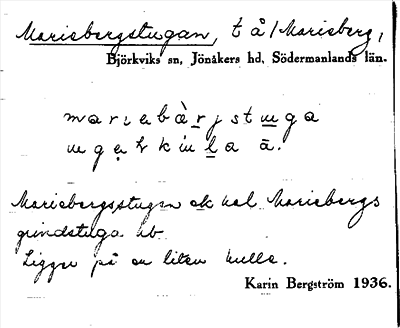 Mariebergstugan, t å/Marieberg,
Björkviks sn, Jönåkers hd, Södermanlands län.
mariebàrjstuga
Mariebergsstugan ok kal Mariebergs
grindstuga bb
Ligger på en liten kulle.
Karin Bergström 1936.